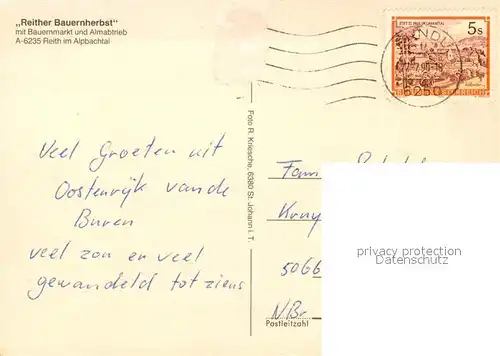 „Reither Bauernherbst“
mit Bauernmarkt und Almabtrieb
A-6235 Reith im Alpbachtal
STIFT ST. PAUL IM LAVANTTAL
5s
6250
Veel Groeten uit
Oostenrijk van de
Buren
veel zon en veel
gewandeld tot ziens
Foto R. Kriesche, 6380 St. Johann i. T.
Fam
5066
N/Br
Postleitzahl
privacy protection
Datenschutz